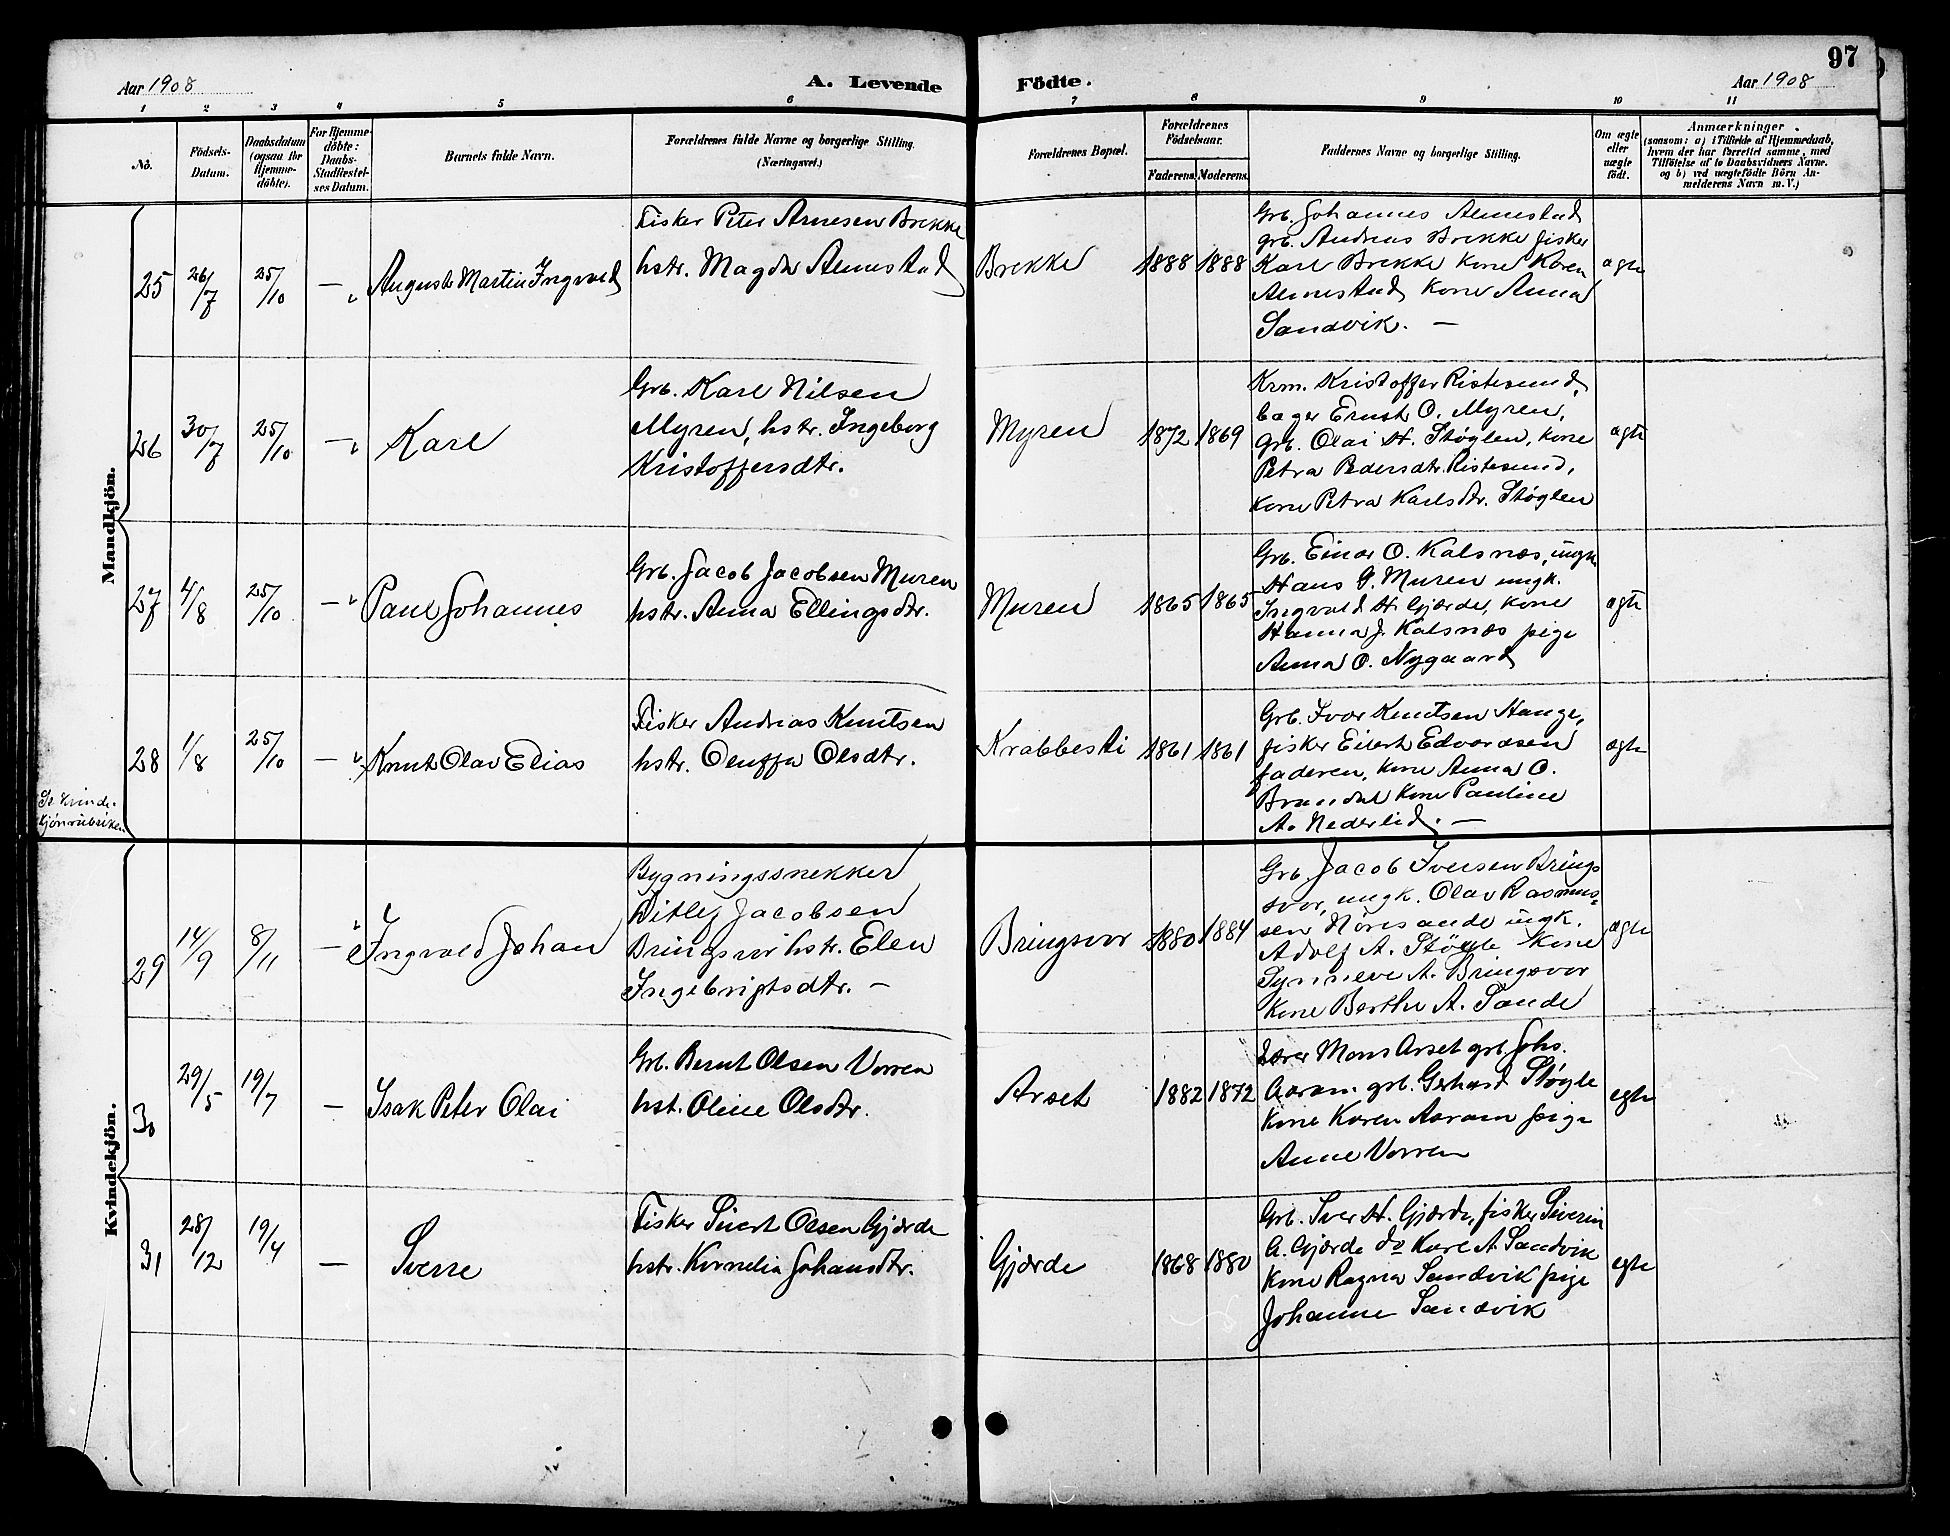 97
Aar 1908
A. Levende
Födte.
Aar 1908
1 2 3 4 5 6 7 8 9 10 11
No.
Födsels-
Datum.
Daabsdatum
(ogsaa for
Hjemme-
döbte).
For Hjemme-
döbte:
Daabs-
Stadfæstel-
ses Datum.
Barnets fulde Navn.
Forældrenes fulde Navne og borgerlige Stilling.
(Næringsvei.)
Forældrenes Bopæl.
Forældrenes
Födselsaar.
Faderens. Moderens.
Faddernes Navne og borgerlige Stilling.
Om ægte
eller
uægte
födt.
Anmærkninger
(saasom: a) i Tilfælde af Hjemmedaab,
hvem der har forrettet samme, med
Tilföielse af to Daabsvidners Navne.
og b) ved uægtefödte Börn An-
melderens Navn m. V.)
Mandkjön.
25
26/7
25/10
—
August Martin Ingvald
Fisker Peter Arnesen Brekke
hstr. Magda Almestad
Brekke
1888 1888
Grb. Johannes Almestad
grb. Andreas Brekke fisker
Karl Brekke kone Karen
Almestad kone Anna
Sandvik. —
ægte
26
30/7
25/10
—
Karl
Grb. Karl Nilsen
Myren, hstr. Ingeborg
Kristoffersdtr.
Myren
1872 1869
Krm. Kristoffer Ristesund,
bager Ernst O. Myren,
Grb. Olai H. Støylen, kone
Petra Pedersdtr. Ristesund,
kone Petra Karlsdtr. Støylen
ægte
27
4/8
25/10
—
Paul Johannes
Grb. Jacob Jacobsen Muren
hstr. Anna Ellingsdtr.
Muren
1865 1865
Grb. Einar O. Kalsnæs, ungk.
Hans G. Muren ungk.
Ingvald H. Gjærde, kone
Hanna J. Kalsnæs pige
Anna O. Nygaard
ægte
28
1/8
25/10
—
Knut Olav Elias
Fisker Andreas Knutsen
hstr. Oluffa Olsdtr.
Krabbesti
1861 1861
Grb. Ivar Knutsen Hauge,
fisker Eilert Edvardsen
faderen, kone Anna O.
Brandal kone Pauline
A. Nederlid. —
ægte
Se Kvinde-
kjønrubriken
Kvindekjön.
29
14/9
8/11
—
Ingvald Johan
Bygningssnekker
Ditlef Jacobsen
Bringsvor hstr. Elen
Ingebrigtsdtr. —
Bringsvor
1880 1884
Grb. Jacob Iversen Brings
svor, ungk. Olav Rasmus-
sen Hörisande ungk.
Adolf A. Støyle kone
Synneve A. Bringsvor
kone Berthe A. Sande
ægte
30
29/5
19/7
—
Isak Peter Olai
Grb. Bernt Olsen Vorren
hst. Oline Olsdtr.
Arset
1882 1872
Lærer Mons Arset grb Johs.
Aaram grb. Gerhard Støyle
kone Karen Aaram pige
Anne Vorren
egte
31
28/12
19/4
—
Sverre
Fisker Sivert Olsen Gjærde
hstr. Kornelia Johansdtr.
Gjærde
1868 1880
Grb. Iver H. Gjærde, fisker Siverin
A. Gjærde do Karl A. Sandvik
kone Ragna Sandvik pige
Johanne Sandvik
egte